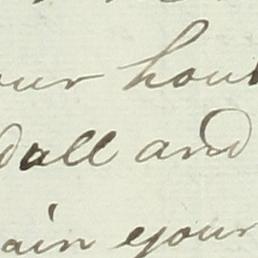 our hou
dall and
ain your